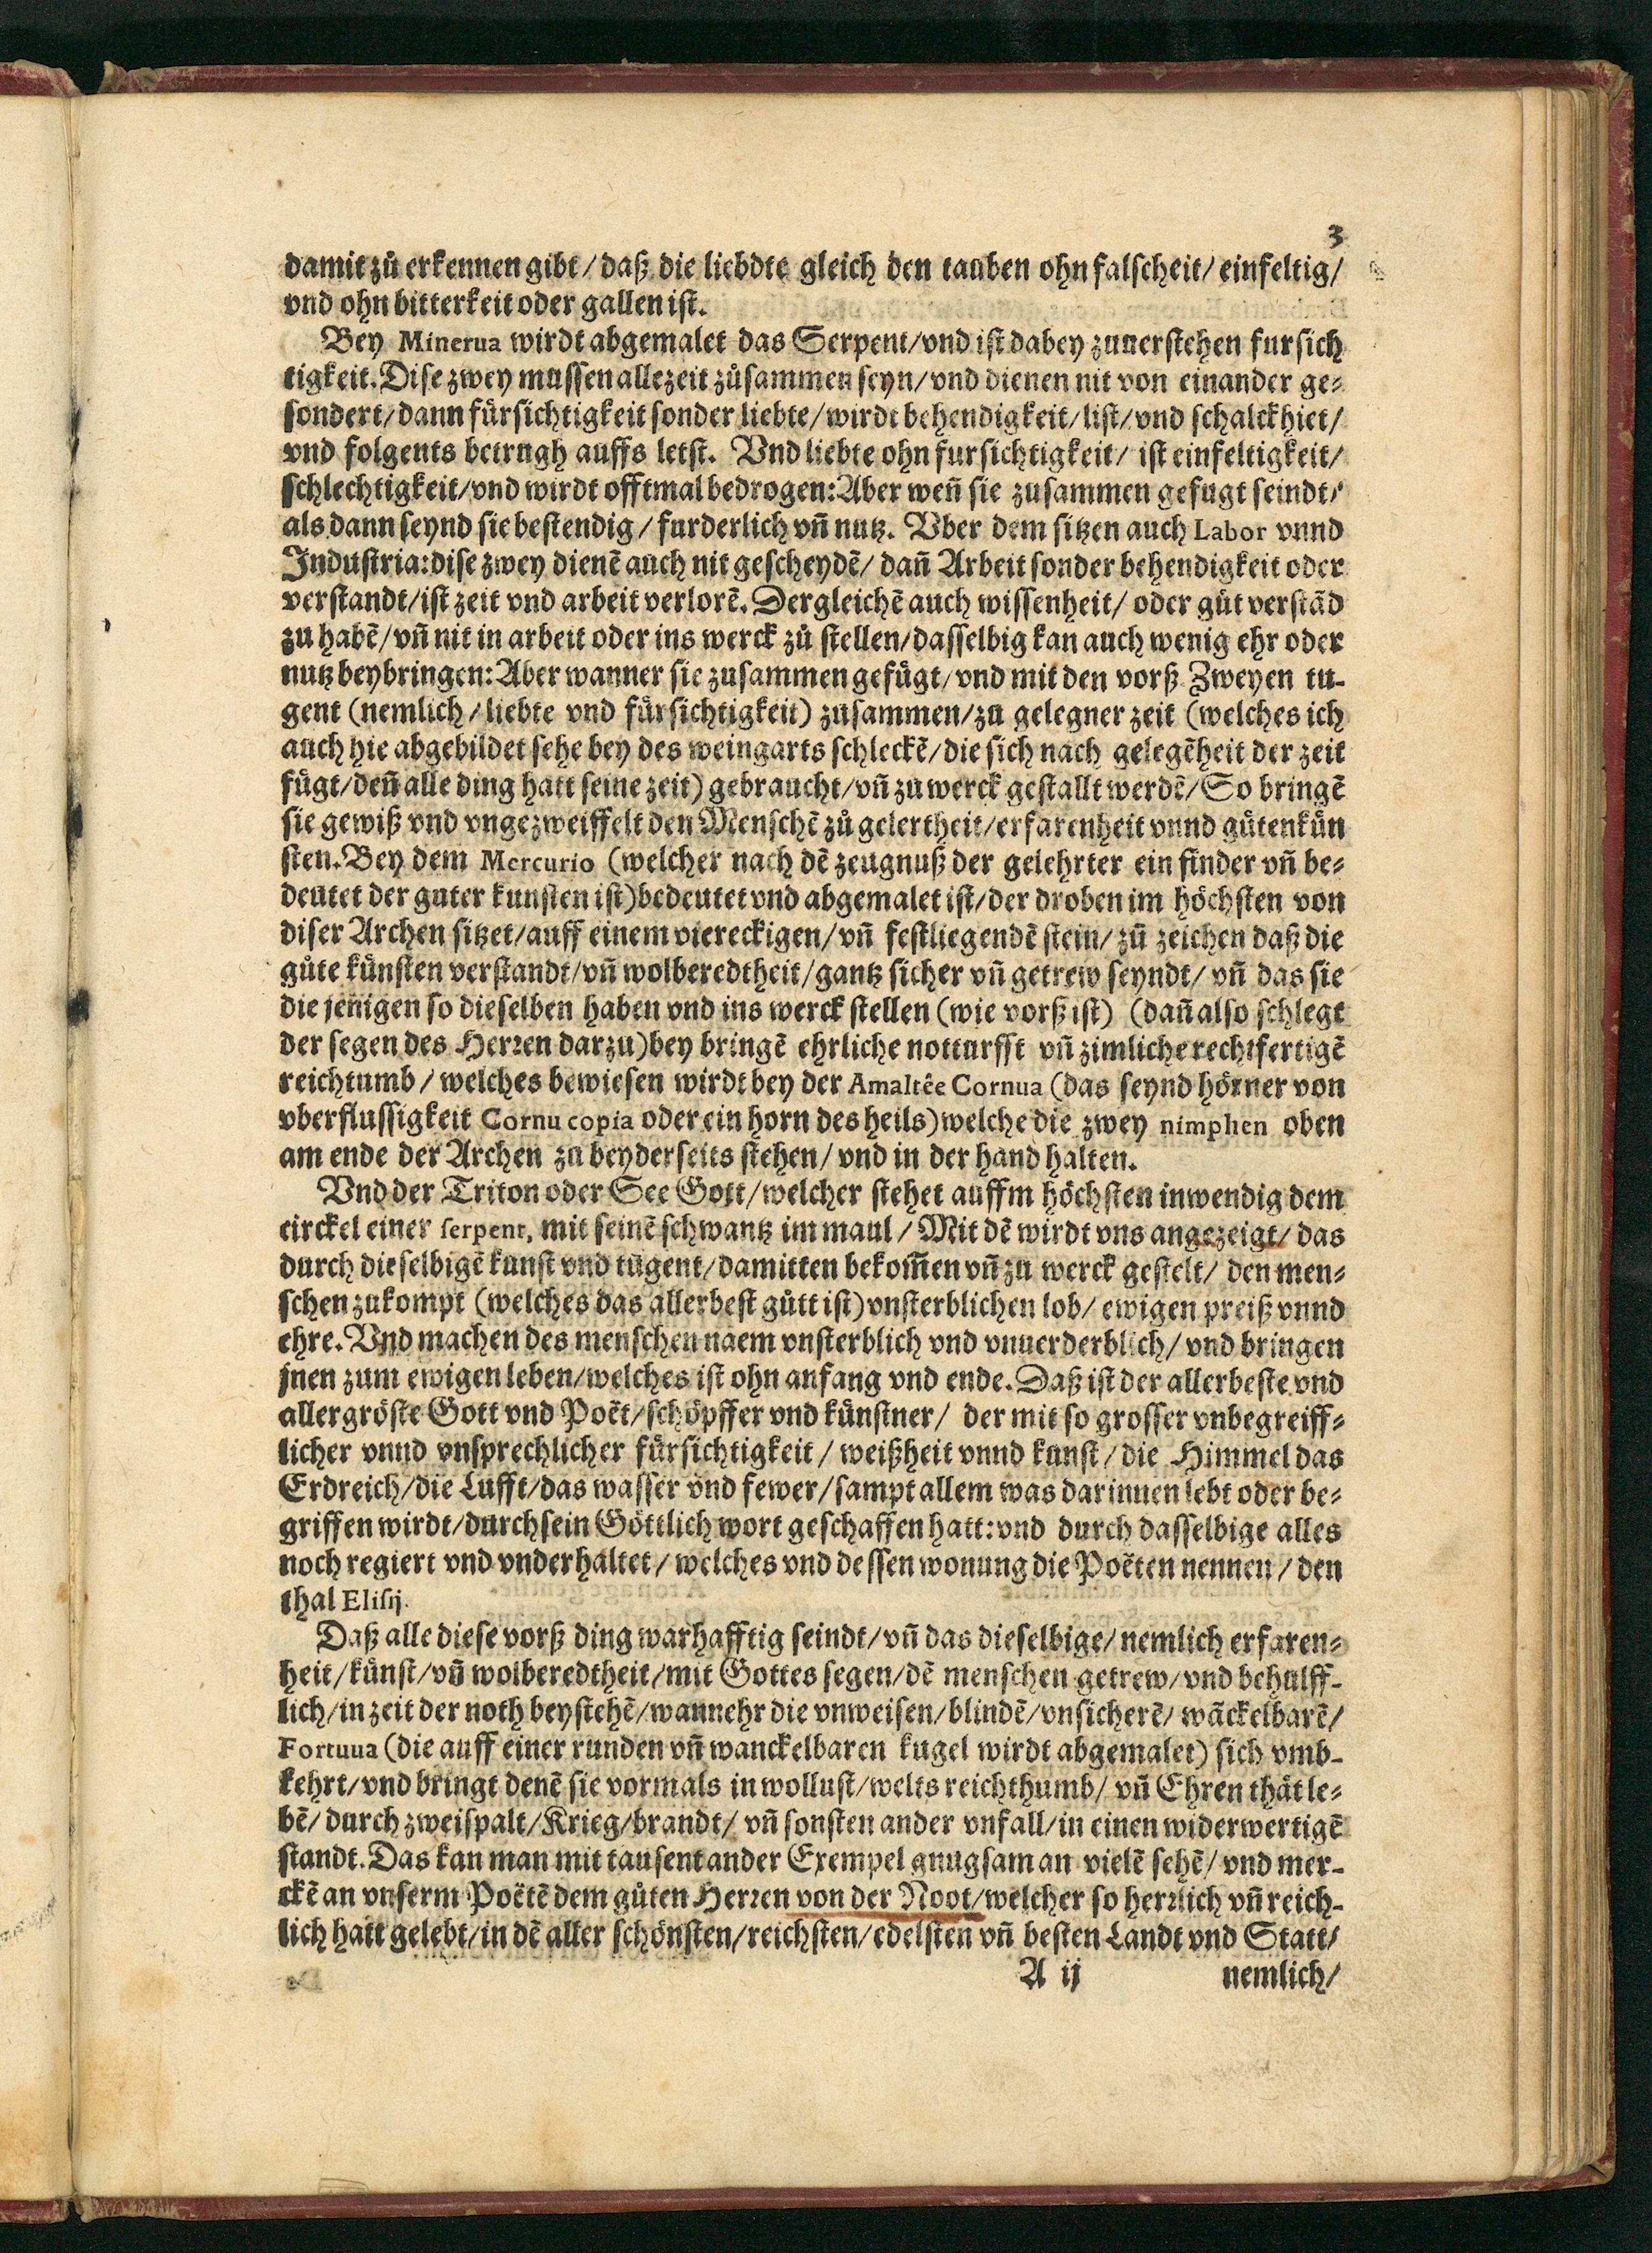 3
damit zů erkennen gibt/ daß die liebdte gleich den tauben ohn falscheit/ einfeltig/
vnd ohn bitterkeit oder gallen ist.
Bey Minerua wirdt abgemalet das Serpent/ vnd ist dabey zuuerstehen fursich
tigkeit. Dise zwey mussen allezeit zůsammen seyn/ vnd dienen nit von einander ge⸗
sondert/ dann fürsichtigkeit sonder liebte/ wirdt behendigkeit/ list/ vnd schalckhiet/
vnd folgents betrugh auffs letst. Vnd liebte ohn fursichtigkeit/ ist einfeltigkeit/
schlechtigkeit/ vnd wirdt offtmal bedrogen: Aber weñ sie zusammen gefugt seindt/
als dann seynd sie bestendig/ furderlich vñ nutz. Vber dem sitzen auch Labor vnnd
Industria: dise zwey dienẽ auch nit gescheydẽ/ dañ Arbeit sonder behendigkeit oder
verstandt/ ist zeit vnd arbeit verlorẽ. Dergleichẽ auch wissenheit/ oder gůt verstãd
zu habẽ/ vñ nit in arbeit oder ins werck zů stellen/ dasselbig kan auch wenig ehr oder
nutz beybringen: Aber wanner sie zusammen gefügt/ vnd mit den vorß Zweyen tu-
gent (nemlich/ liebte vnd fürsichtigkeit) zusammen/ zu gelegner zeit (welches ich
auch hie abgebildet sehe bey des weingarts schleckẽ/ die sich nach gelegẽheit der zeit
fügt/ deñ alle ding hatt seine zeit) gebraucht/ vñ zu werck gestallt werdẽ/ So bringẽ
sie gewiß vnd vngezweiffelt den Menschẽ zů gelertheit/ erfarenheit vnnd gůten kün
sten. Bey dem Mercurio (welcher nach dẽ zeugnuß der gelehrter ein finder vñ be⸗
deutet der guter kunsten ist) bedeutet vnd abgemalet ist/ der droben im höchsten von
diser Archen sitzet/ auff einem viereckigen/ vñ festliegendẽ stein/ zů zeichen daß die
gůte künsten verstandt/ vñ wolberedtheit/ gantz sicher vñ getrew seyndt/ vñ das sie
die jenigen so dieselben haben vnd ins werck stellen (wie vorß ist) (dañ also schlegt
der segen des Herꝛen darzu) bey bringẽ ehrliche notturfft vñ zimliche rechtfertigẽ
reichtumb/ welches bewiesen wirdt bey der Amaltêe Cornua (das seynd hörner von
vberflussigkeit Cornu copia oder ein horn des heils) welche die zwey nimphen oben
am ende der Archen zu beyderseits stehen/ vnd in der hand halten.
Vnd der Triton oder See Gott/ welcher stehet auffm höchsten inwendig dem
circkel einer serpent, mit seinẽ schwantz im maul/ Mit dẽ wirdt vns angezeigt/ das
durch dieselbigẽ kunst vnd tugent/ damitten bekom̃en vñ zu werck gestelt/ den men⸗
schen zukompt (welches das allerbest gůtt ist) vnsterblichen lob/ ewigen preiß vnnd
ehre. Vnd machen des menschen naem vnsterblich vnd vnuerderblich/ vnd bringen
jnen zum ewigen leben/ welches ist ohn anfang vnd ende. Daß ist der allerbeste vnd
allergröste Gott vnd Poët/ schöpffer vnd künstner/ der mit so grosser vnbegreiff⸗
licher vnnd vnsprechlicher fürsichtigkeit/ weißheit vnnd kunst/ die Himmel das
Erdreich/ die Lufft/ das wasser vnd fewer/ sampt allem was darinnen lebt oder be⸗
griffen wirdt/ durch sein Göttlich wort geschaffen hatt: vnd durch dasselbige alles
noch regiert vnd vnderhaltet/ welches vnd dessen wonung die Poëten nennen/ den
thal Elisij.
Daß alle diese vorß ding warhafftig seindt/ vñ das dieselbige/ nemlich erfaren⸗
heit/ künst/ vñ wolberedtheit/ mit Gottes segen/ dẽ menschen getrew/ vnd behülff-
lich/ in zeit der noth beystehẽ/ wannehr die vnweisen/ blindẽ/ vnsicherẽ/ wãckelbarẽ/
Fortuua (die auff einer runden vñ wanckelbaren kugel wirdt abgemalet) sich vmb-
kehrt/ vnd bringt denẽ sie vormals in wollust/ welts reichthumb/ vñ Ehren thät le⸗
bẽ/ durch zweispalt/ Krieg/ brandt/ vñ sonsten ander vnfall/ in einen widerwertigẽ
standt. Das kan man mit tausent ander Exempel gnugsam an vielẽ sehẽ/ vnd mer-
ckẽ an vnserm Poëtẽ dem gůten Herꝛen von der Noot/ welcher so herꝛlich vñ reich-
lich hatt gelebt/ in dẽ aller schönsten/ reichsten/ edelsten vñ besten Landt vnd Statt/
A ij nemlich/